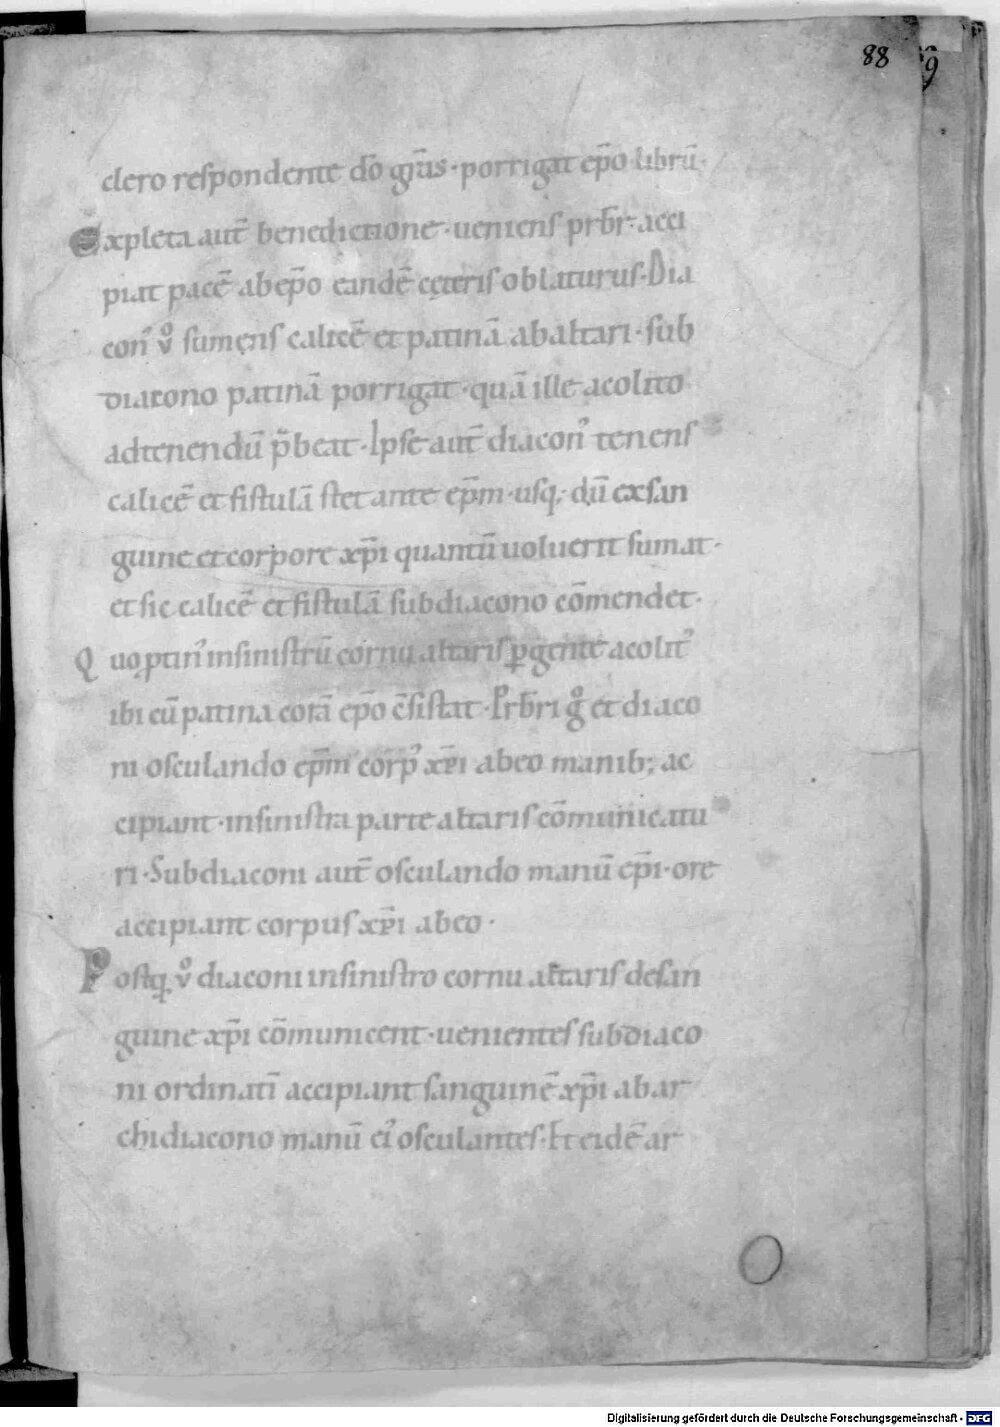 88
9
clero respondente do̅ gr̅as · porrigat ep̅o libru̅ ·
Expleta aut̅ benedictione · ueniens prb̅r · acci
piat pace̅ ab ep̅o eande̅ cęteris oblaturus · Dia
con᾽ v° sumens calice̅ et patina̅ ab altari · sub
diacono patina̅ porrigat · qua̅ ille acolito
ad tenendu̅ p̅beat · Ipse aut̅ diacon᾽ tenens
calice̅ et fistula̅ stet ante ep̅m · usq; du̅ ex san
guine et corpore xp̅i quantu̅ uoluerit sumat ·
et sic calice̅ et fistula̅ subdiacono co̅mendet ·
Quo ꝓtin᾽ in sinistru̅ cornu altaris ꝑgente acolit᾽
ibi cu̅ patina cora̅ ep̅o c̅sistat · Prb̅ri g° et diaco
ni osculando ep̅m corp᾽ xp̅i ab eo manib; ac
cipiant · in sinistra parte altaris co̅municatu
ri · Subdiaconi aut̅ osculando manu̅ ep̅i · ore
accipiant corpus xp̅i ab eo ·
Postq̅ v° diaconi in sinistro cornu altaris de san
guine xp̅i co̅municent · uenientes subdiaco
ni ordinati̅ accipiant sanguine̅ xp̅i ab ar
chidiacono manu̅ ei᾽ osculantes · Et eide̅ ar
Digitalisierung gefördert durch die Deutsche Forschungsgemeinschaft - DFG